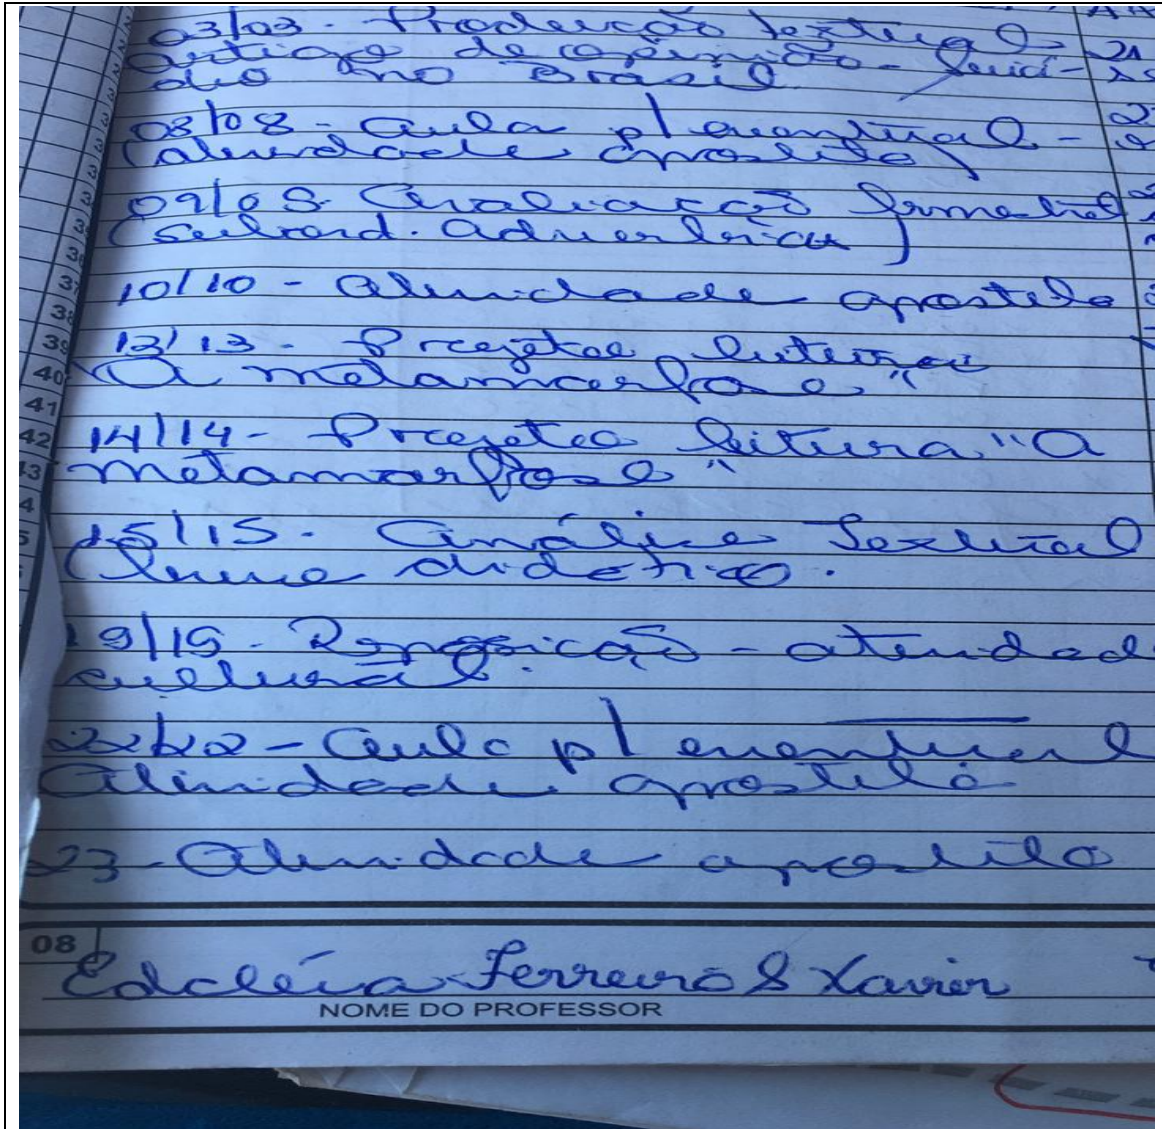 03/03 - Produção textual -
artigo de opinião - Suicí-
dio no Brasil
08/08 - Aula p/ eventual -
(atividade apostila)
09/08 - Avaliação bimestral
(Subord. Adverbiais)
10/10 - Atividade apostila
13/13 - Projeto leitura
"A metamorfose"
14/14 - Projeto leitura "A
metamorfose"
15/15 - Análise textual
(livro didático.
19/19 - Reposição - atividad
cultural.
22/22 - Aula p/ eventual
Atividade apostila
23 - Atividade apostila
37
39
40
41
42
08
Edcléia Ferreira S Xavier
NOME DO PROFESSOR